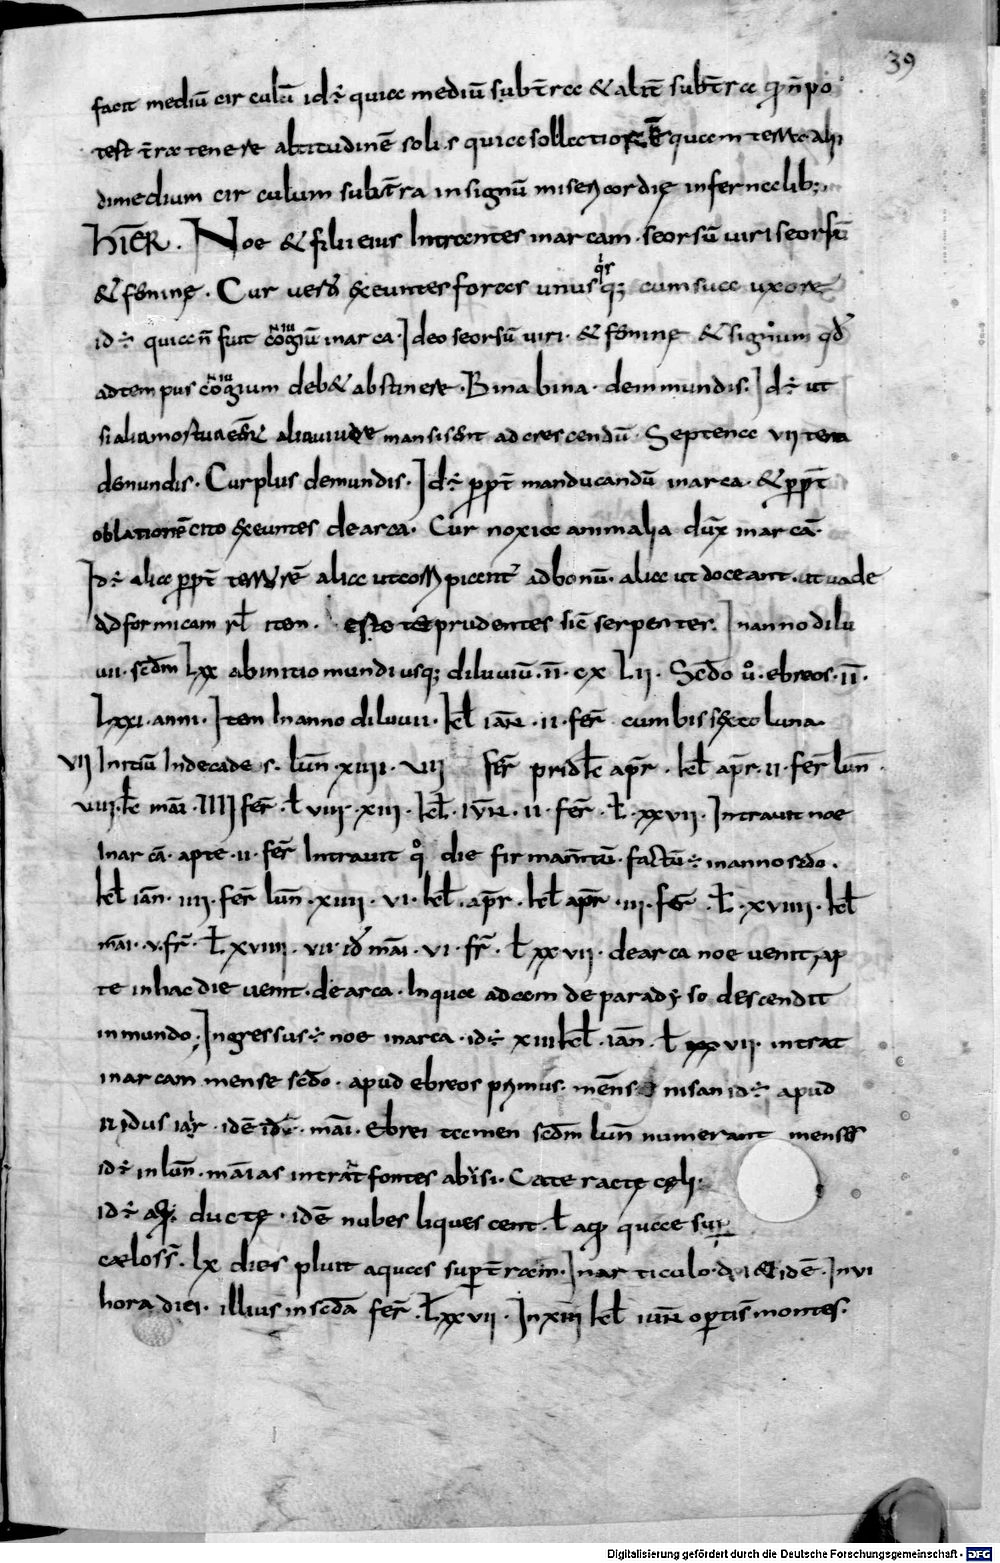 39
facit mediū cir culū id÷ quia mediū sub t̄ra & alit̄ sub t̄ra qn̄ po
test t̄ra tenere altitudinē solis quia sollectio quam
dimedium cir culum sub t̄ra in signū misericordie inferna lib;
HIER. Noe & filii eius Intrantes in arcam. seorsū viri seorsū
& feminę. Cur vero exeuntes foras unusq; cum sua uxore
id÷ quia n̄ fuit coniugiū in arca. Ideo seorsū viri. & feminę & signum qđ
ad tempus coniugium deb& abstinere. Bina bina. de inmundis. Id÷ ut
si alia mortua alia mansisent ad crescendū. Septena VII
de mundis. Cur plus de mundis. Id÷ ꝓpt̄ manducandū in arca. & ꝓpt̄
oblationē cito exeuntes de arca. Cur noxia animalia dux̄ in arcā.
Id÷ alia ꝓpt̄ terrorē alia ut conspicent̄ ad bonū. alia ut doceant. ut vade
ad formicam rł item. estote prudentes sic̄ serpentes. In anno dilu
vii. scd̄m Lxx ab initio mundi usq; diluviū. II. cx Lii. Scd̄o u̇. ebreos. II.
Lxxi. anni. Item In anno diluvii. kł iañ. II. fer̄ cum bis sexto luna.
VII Initiū Indecade s. luñ. xiiii. viii fer̄ prid kł apr̄. kł apr̄. II. fer̄ luñ.
viii. kł mai. IIII fer̄. ł viii. xiii. kł. iuñ. II. fer̄. ł. xxvii. Intravit noe
In arcā. apte. II. fer̄ Intravit qͦ die firmam̄tū. factū÷ in anno scd̄o.
kł iañ. iiii. fer̄ luñ. xiiii. vi. kł. apr̄. kł apr̄. iii. fer̄. ł. xviiii. kł
mai. v. fr̄. ł xviiii. vii. id mai. vi. fr̄. ł xxvii. de arca noe venit, ap
te in hac die venit. de arca. In qua adam de paradyso descendit
in mundo; Ingressus÷ noe in arca. id÷ xiii kł. iañ. ł xxvii. intrat
in arcam mense scd̄o. apud ebreos primus. mens nisan id÷ apud
nidus iar. idē mai. Ebrei tamen scd̄m luñ numerant menses
id÷ in luñ. maias intrat fontes abysi. Cateracte cęli.
id÷ aq̄. ductę. idē nubes liquescent. ł aq̄ quae sup
caelos s̄. Lx dies pluit aquas sup t̄ram. In articulo. diei idē. In vi
hora diei. illius in scd̄a fer̄. Łxxvii. In xiii kł iuñ optis montes.
Digitalisierung gefördert durch die Deutsche Forschungsgemeinschaft - DFG